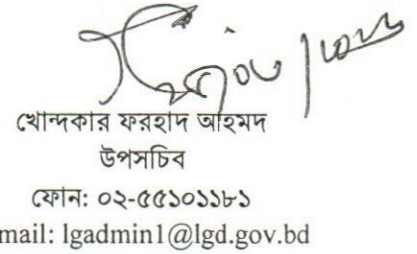 খোন্দকার ফরহাদ আহমদ
উপসচিব
ফোন: ০২-৫৫১০১১৮১
mail: lgadmin1@lgd.gov.bd